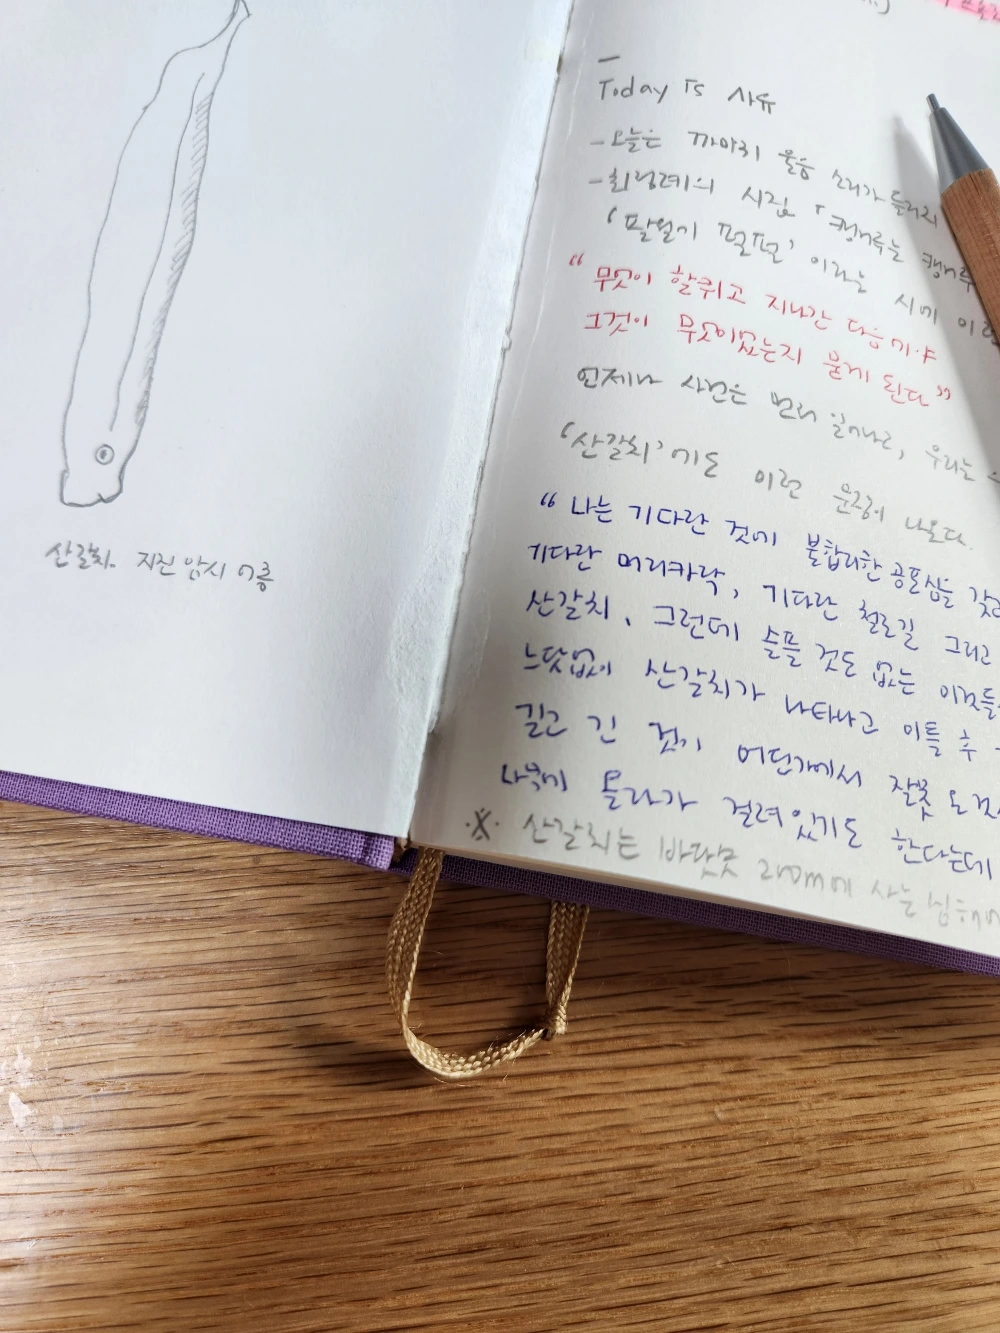 산갈치. 지진 암시 어종
Today Is 사유
- 오늘은 까마귀 울음 소리가 들리지
- 최정례의 시집 「캥거루는 캥거루
'팔월이 펄펄' 이라는 시에 이런
" 무엇이 할퀴고 지나간 다음에야
그것이 무엇이었는지 묻게 된다 "
언제나 사건은 먼저 일어나고, 우리는
'산갈치'에도 이런 문장이 나온다.
" 나는 기다란 것에 불합리한 공포심을 갖고
기다란 머리카락, 기다란 철로길 그리고
산갈치. 그런데 슬플 것도 없는 이것들
느닷없이 산갈치가 나타나고 이틀 후
길고 긴 것이 어딘가에서 잘못 도착
나뭇에 올라가 걸려있기도 한다는데
※ 산갈치는 바닷못 200m에 사는 심해어